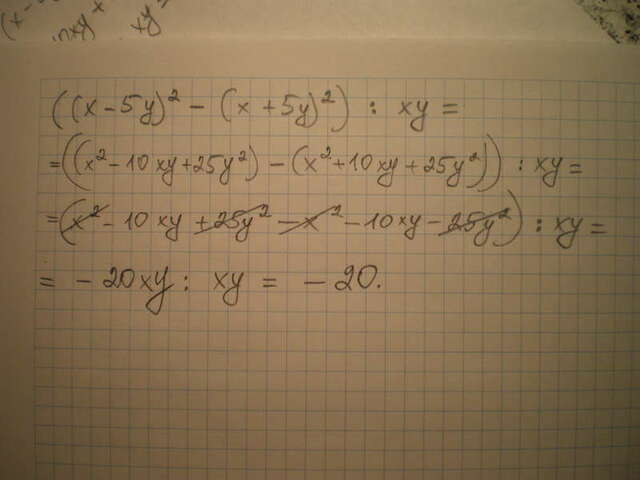 xy
((x - 5y)² - (x + 5y)²) : xy =
= ((x² - 10xy + 25y²) - (x² + 10xy + 25y²)) : xy =
= (x² - 10xy + 25y² - x² - 10xy - 25y²) : xy =
= - 20xy : xy = - 20.